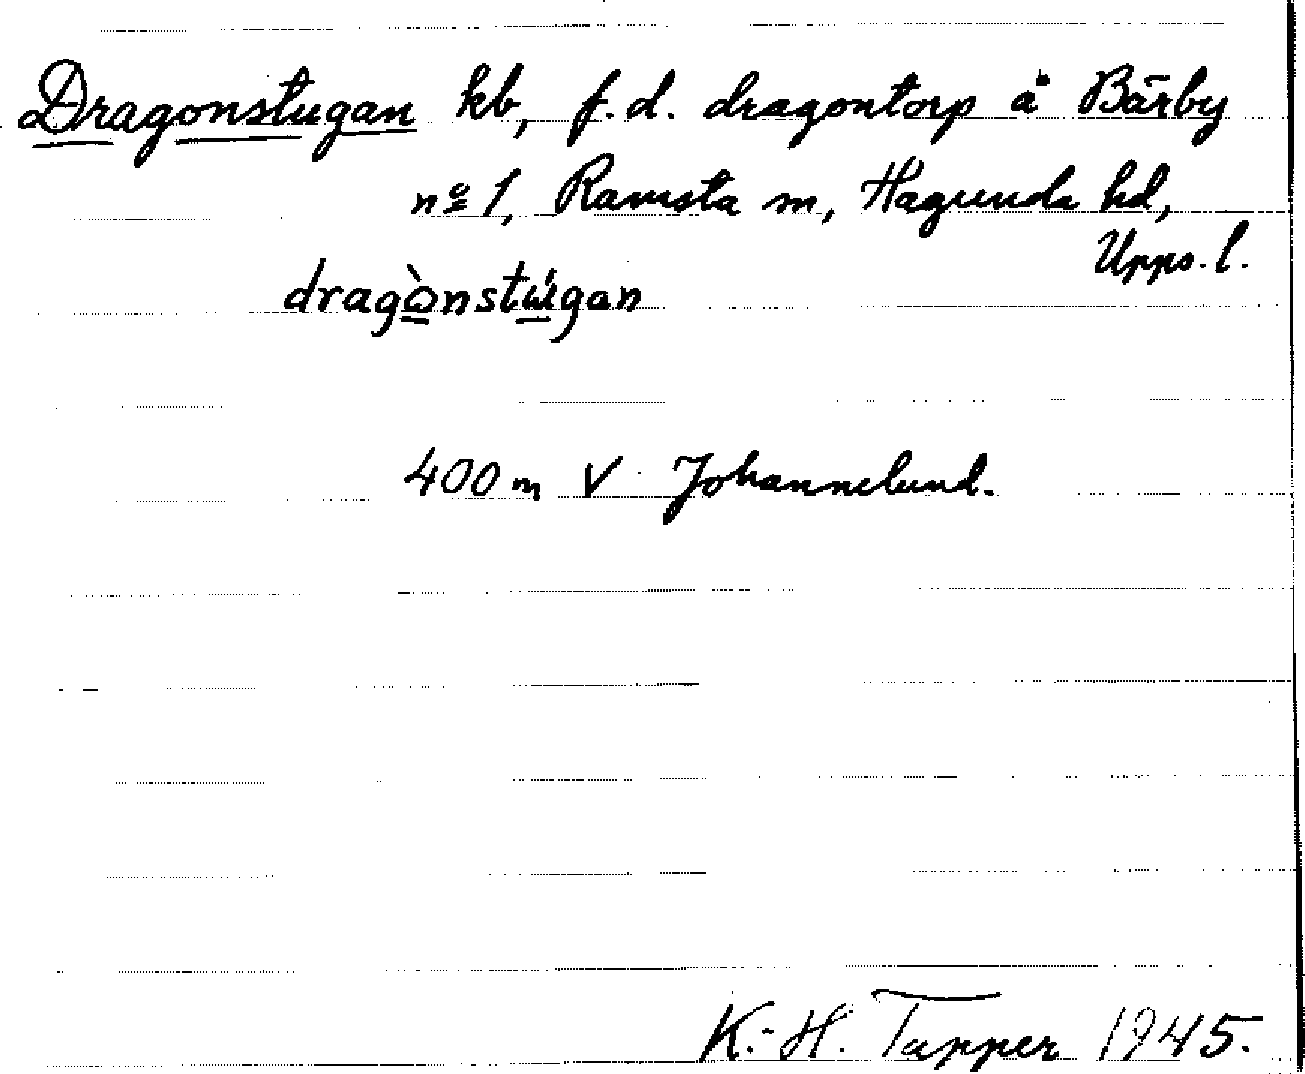 Dragonstugan kb, f.d. dragontorp å Bärby
nº 1, Ramsta sn, Hagunda hd,
Upps. l.
dragònstúgan
400 m V Johannelund.
K.-H. Tapper 1945.